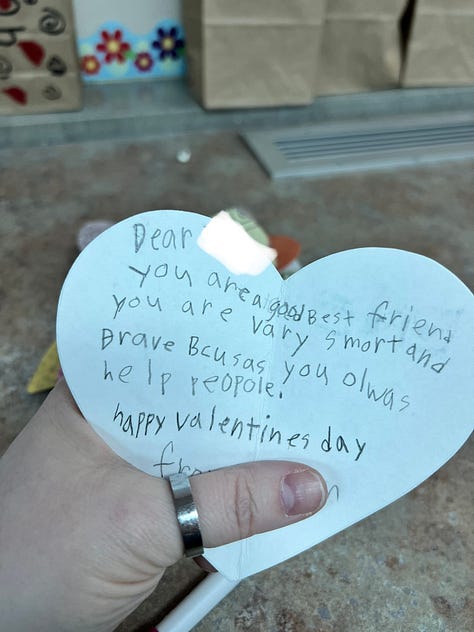 Dear
you are a good Best friend
you are vary smort and
Brave Bcusas you olwas
help peopole.
happy valentines day